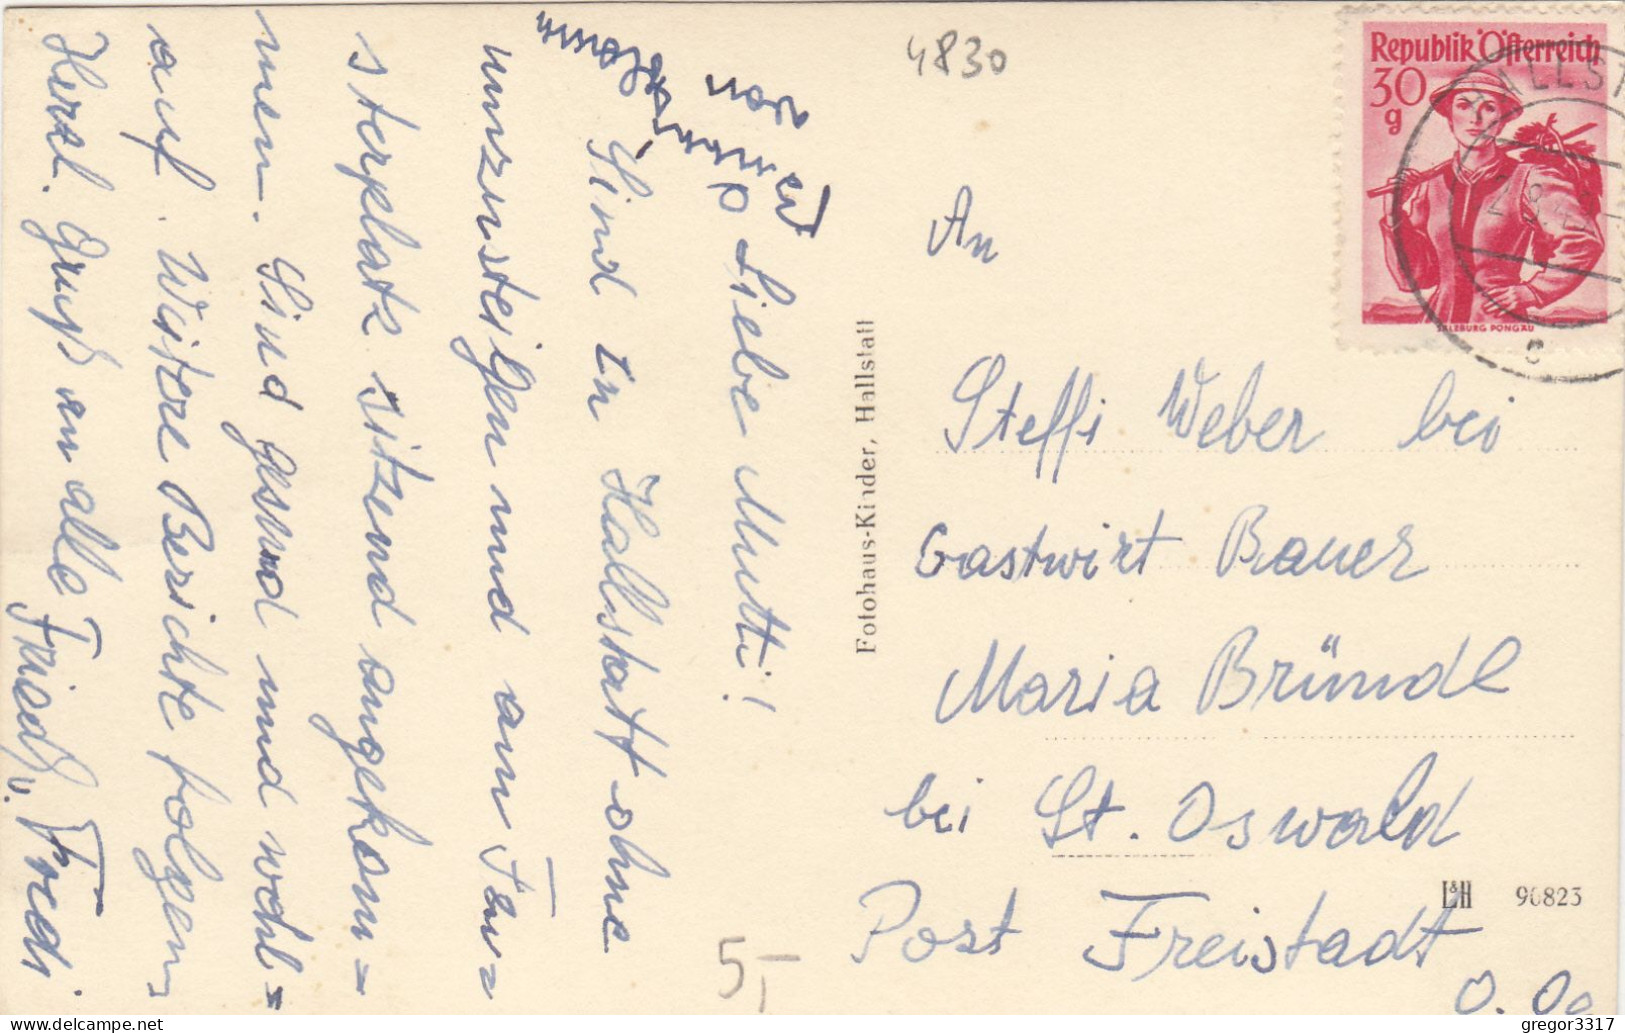 Liebe Mutti!
Sind in Hallstatt ohne
umzusteigen und am Fen=
sterplatz sitzend angekom=
men. Sind gesund und wohl=
auf. Weitere Berichte folgen,
Herzl. Gruß an alle Friedl u. Fredi
von
4830
5,-
Fotohaus-Kinder, Hallstatt
Republik Österreich
30
g
SALZBURG PONGAU
HALLST
An
Steffi Weber bei
Gastwirt Bauer
Maria Bründl
bei St. Oswald
Post Freistadt
O. Oe
L&H 90823
gregor3317